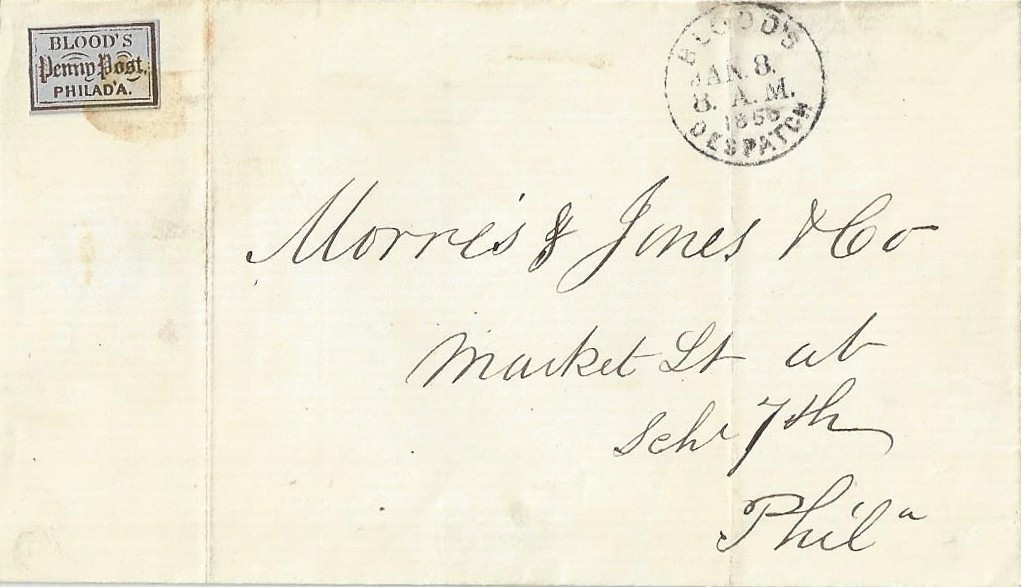 BLOOD'S
Penny Post,
PHILAD'A.
BLOOD'S
JAN. 8.
8. A.M.
DESPATCH
Morris & Jones & Co
Market St at
Schl 7th
Phil'a